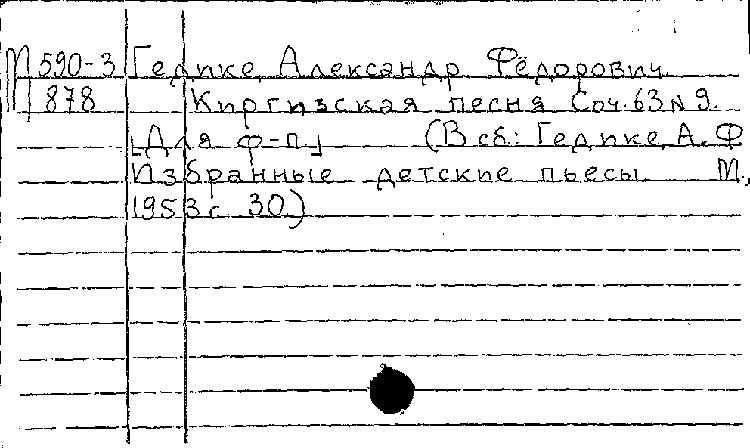 М 590-3 Гедике, Александр Фёдорович.
М 878 Киргизская песня Соч. 63 N 9.
[Для ф-п] (В сб: Гедике, А. Ф
Избранные детские пьесы М.,
1953 с 30)